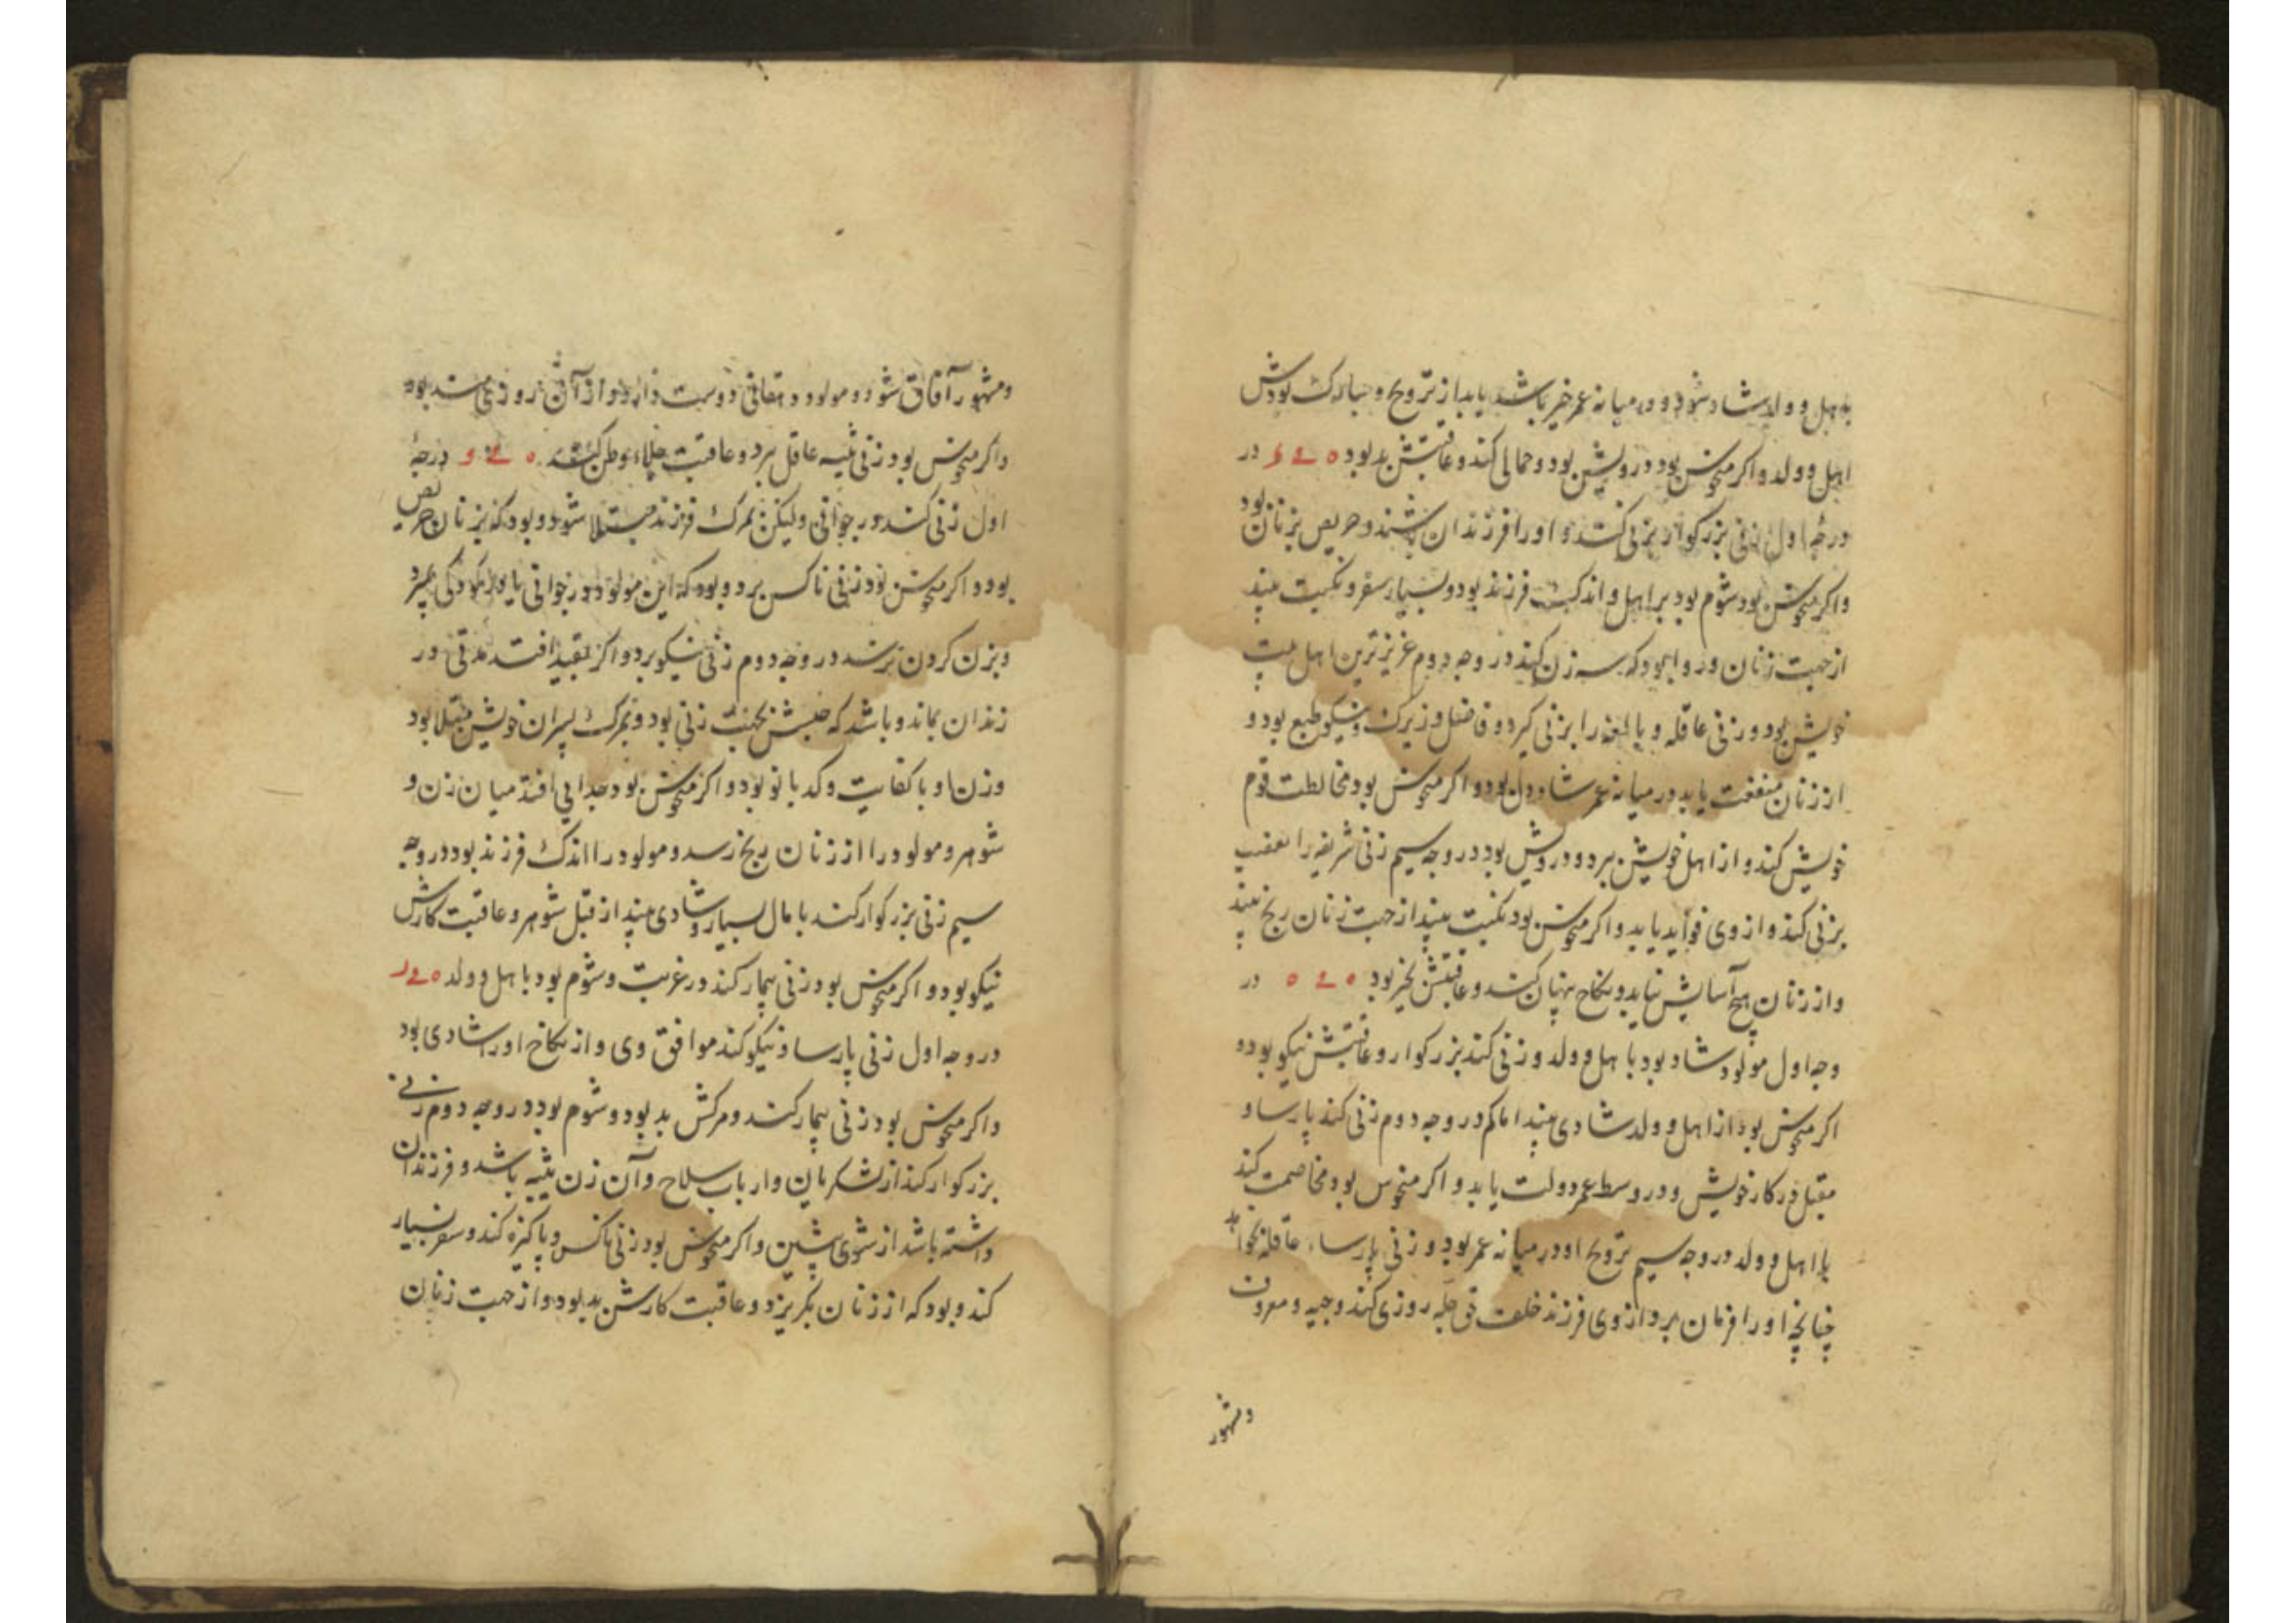 به اهل و ولد شاد شود و در میانه عمر خیر باشد یابد از تزویج و مبارک بودش
اهل و ولد و اکر منحوس بود درویش بود و حمالی کند و عاقبتش بد بود ٥ ے و در
درجهٔ اول زنی بزرکوار بزنی کند و او را فرزندان باشند و حریص بزنان بود
و اکر منحوس بود شوم بود بر اهل و اندک فرزند بود و بسیار سفر و نکبت بیند
از جهت زنان و روا بود که سه زن کند در وجه دوم عزیزترین اهل بیت
خویش بود و زنی عاقله و بالغه را بزنی کیرد و فاضل و زیرک و نیکو طبع بود و
از زنان منفعت یابد در میانه عمر شاد دل بود و اکر منحوس بود مخالطت قوم
خویش کند و از اهل خویش برد و درویش بود در وجه سیم زنی شریفه را
بزنی کند و از وی فواید یابد و اکر منحوس بود نکبت بیند از جهت زنان رنج بیند
و از زنان هیچ آسایش نیابد و نکاح پنهان کند و عاقبتش بخیر بود ٥ ے ٥ در
وجه اول مولود شاد بود با اهل و ولد و زنی کند بزرکوار و عاقبتش نیکو بود و
اکر منحوس بود از اهل و ولد شادی بیند اما کم در وجه دوم زنی کند پارسا و
مقبل در کار خویش و در وسط عمر دولت یابد و اکر منحوس بود مخاصمت کند
با اهل و ولد در وجه سیم تزویج او در میانه عمر بود و زنی پارسا عاقله بخواهد
چنانچه او را فرمان برد از وی فرزند خلف روزی کند وجیه و معروف
و مشهور
و مشهور آفاق شود و مولود دهقانی دوست دارد و از آنش روزمند بود
و اکر منحوس بود زنی ثیبه عاقل برد و عاقبت جلاء وطن کند ٥ ے و درجهٔ
اول زنی کند در جوانی و لیکن بمرک فرزند مبتلا شود و بود که بزنان حریص
بود و اکر منحوس بود زنی ناکس برد و بود که این مولود در جوانی یا در کودکی بمیرد
و بزن کردن نرسد در وجه دوم زنی نیکو برد و اکر بقید افتد مدتی در
زندان بماند و باشد که حبسش بجهت زنی بود و بمرک پسران خویش مبتلا بود
و زن او با کفایت و کدبانو بود و اکر منحوس بود جدایی افتد میان زن و
شوهر و مولود را از زنان رنج رسد و مولود را اندک فرزند بود در وجه
سیم زنی بزرکوار کند با مال بسیار و شادی بیند از قبل شوهر و عاقبت کارش
نیکو بود و اکر منحوس بود زنی بیمار کند در غربت و شوم بود با اهل و ولد ٥ ے ر
در وجه اول زنی پارسا و نیکو کند موافق وی و از نکاح او را شادی بود
و اکر منحوس بود زنی بیمار کند و مرکش بد بود و شوم بود در وجه دوم زنی
بزرکوار کند از لشکریان و ارباب سلاح و آن زن ثیبه باشد و فرزندان
داشته باشد از شوی پیشین و اکر منحوس بود زنی ناکس و پاکیزه کند و سفر بسیار
کند و بود که از زنان بکریزد و عاقبت کارش بد بود و از جهت زنان